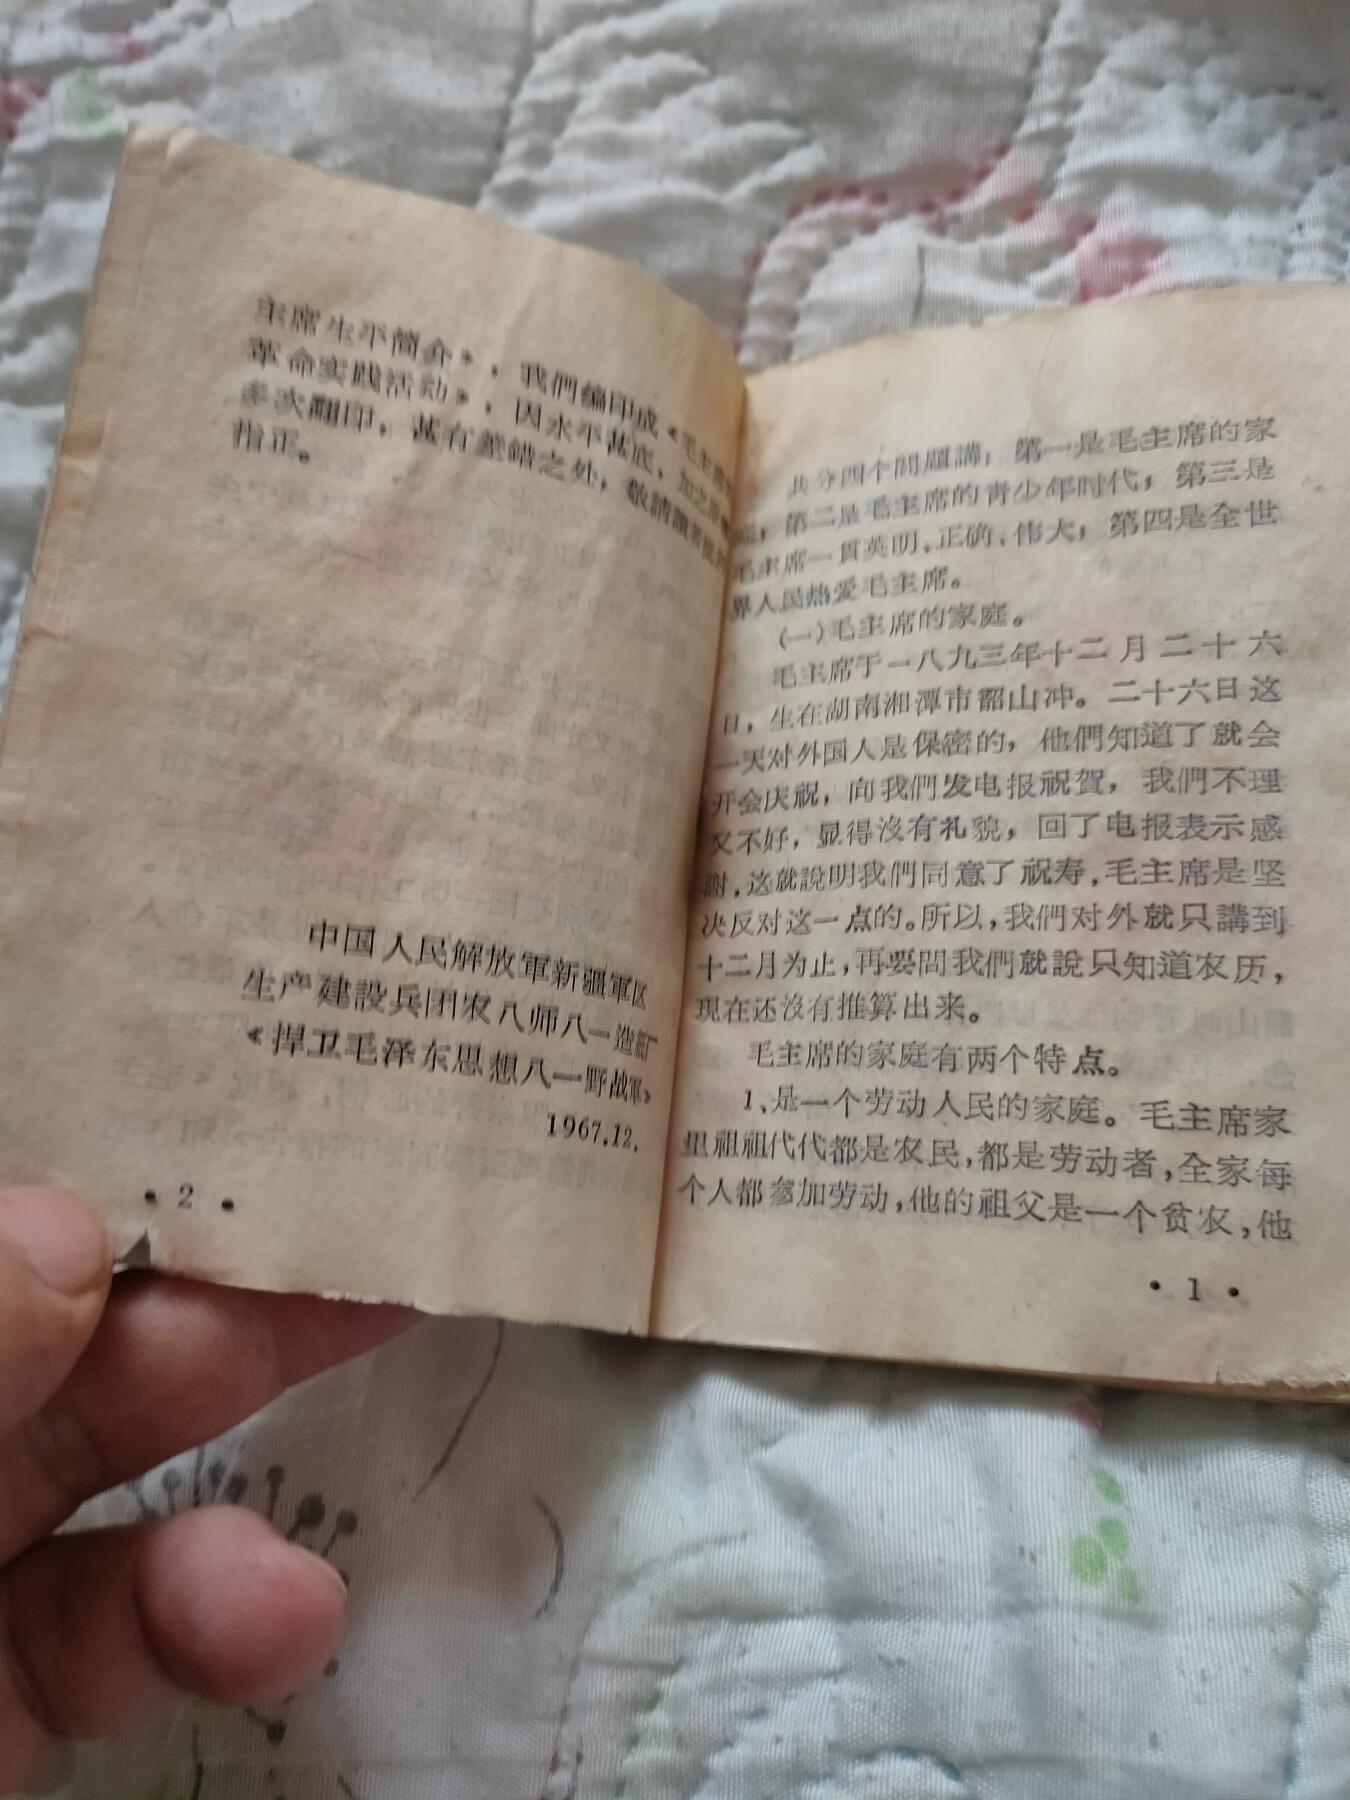 主席生平简介》，我們编印成《毛主席
革命实践活动》，因水平甚底，加之
多次翻印，甚有差錯之处，敬請讀者批
指正。
中国人民解放軍新疆軍区
生产建設兵团农八师八一造紙厂
《捍卫毛泽东思想八一野战軍》
1967.12.
• 2 •
共分四个問題講；第一是毛主席的家
庭；第二是毛主席的青少年时代；第三是
毛主席一貫英明、正确、伟大；第四是全世
界人民热爱毛主席。
(一)毛主席的家庭。
毛主席于一八九三年十二月二十六
日，生在湖南湘潭市韶山冲。二十六日这
一天对外国人是保密的，他們知道了就会
开会庆祝，向我們发电报祝賀，我們不理
又不好，显得沒有礼貌，回了电报表示感
謝，这就說明我們同意了祝寿，毛主席是坚
决反对这一点的。所以，我們对外就只講到
十二月为止，再要問我們就說只知道农历，
現在还沒有推算出来。
毛主席的家庭有两个特点。
1、是一个劳动人民的家庭。毛主席家
里祖祖代代都是农民，都是劳动者，全家每
个人都参加劳动，他的祖父是一个贫农，他
• 1 •